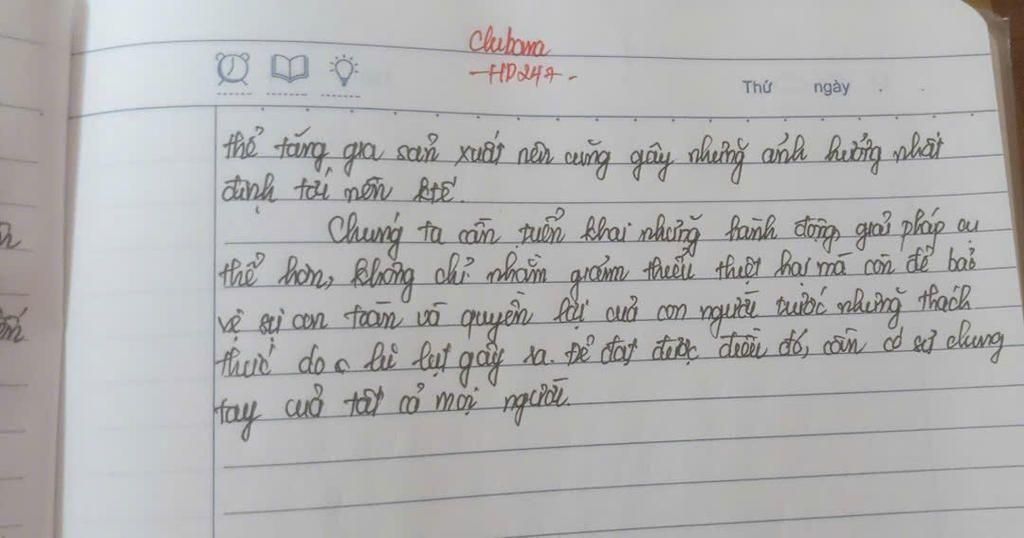 Clubana
-HD247-
Thứ ngày
thể tăng gia sản xuất nên cũng gây những ảnh hưởng nhất
định tới nền ktế.
Chúng ta cần triển khai những hành động, giải pháp cụ
thể hơn, không chỉ nhằm giảm thiểu thiệt hại mà còn để bảo
vệ sự an toàn và quyền lợi của con người trước những thách
thức do lũ lụt gây ra. Để đạt được điều đó, cần có sự chung
tay của tất cả mọi người.